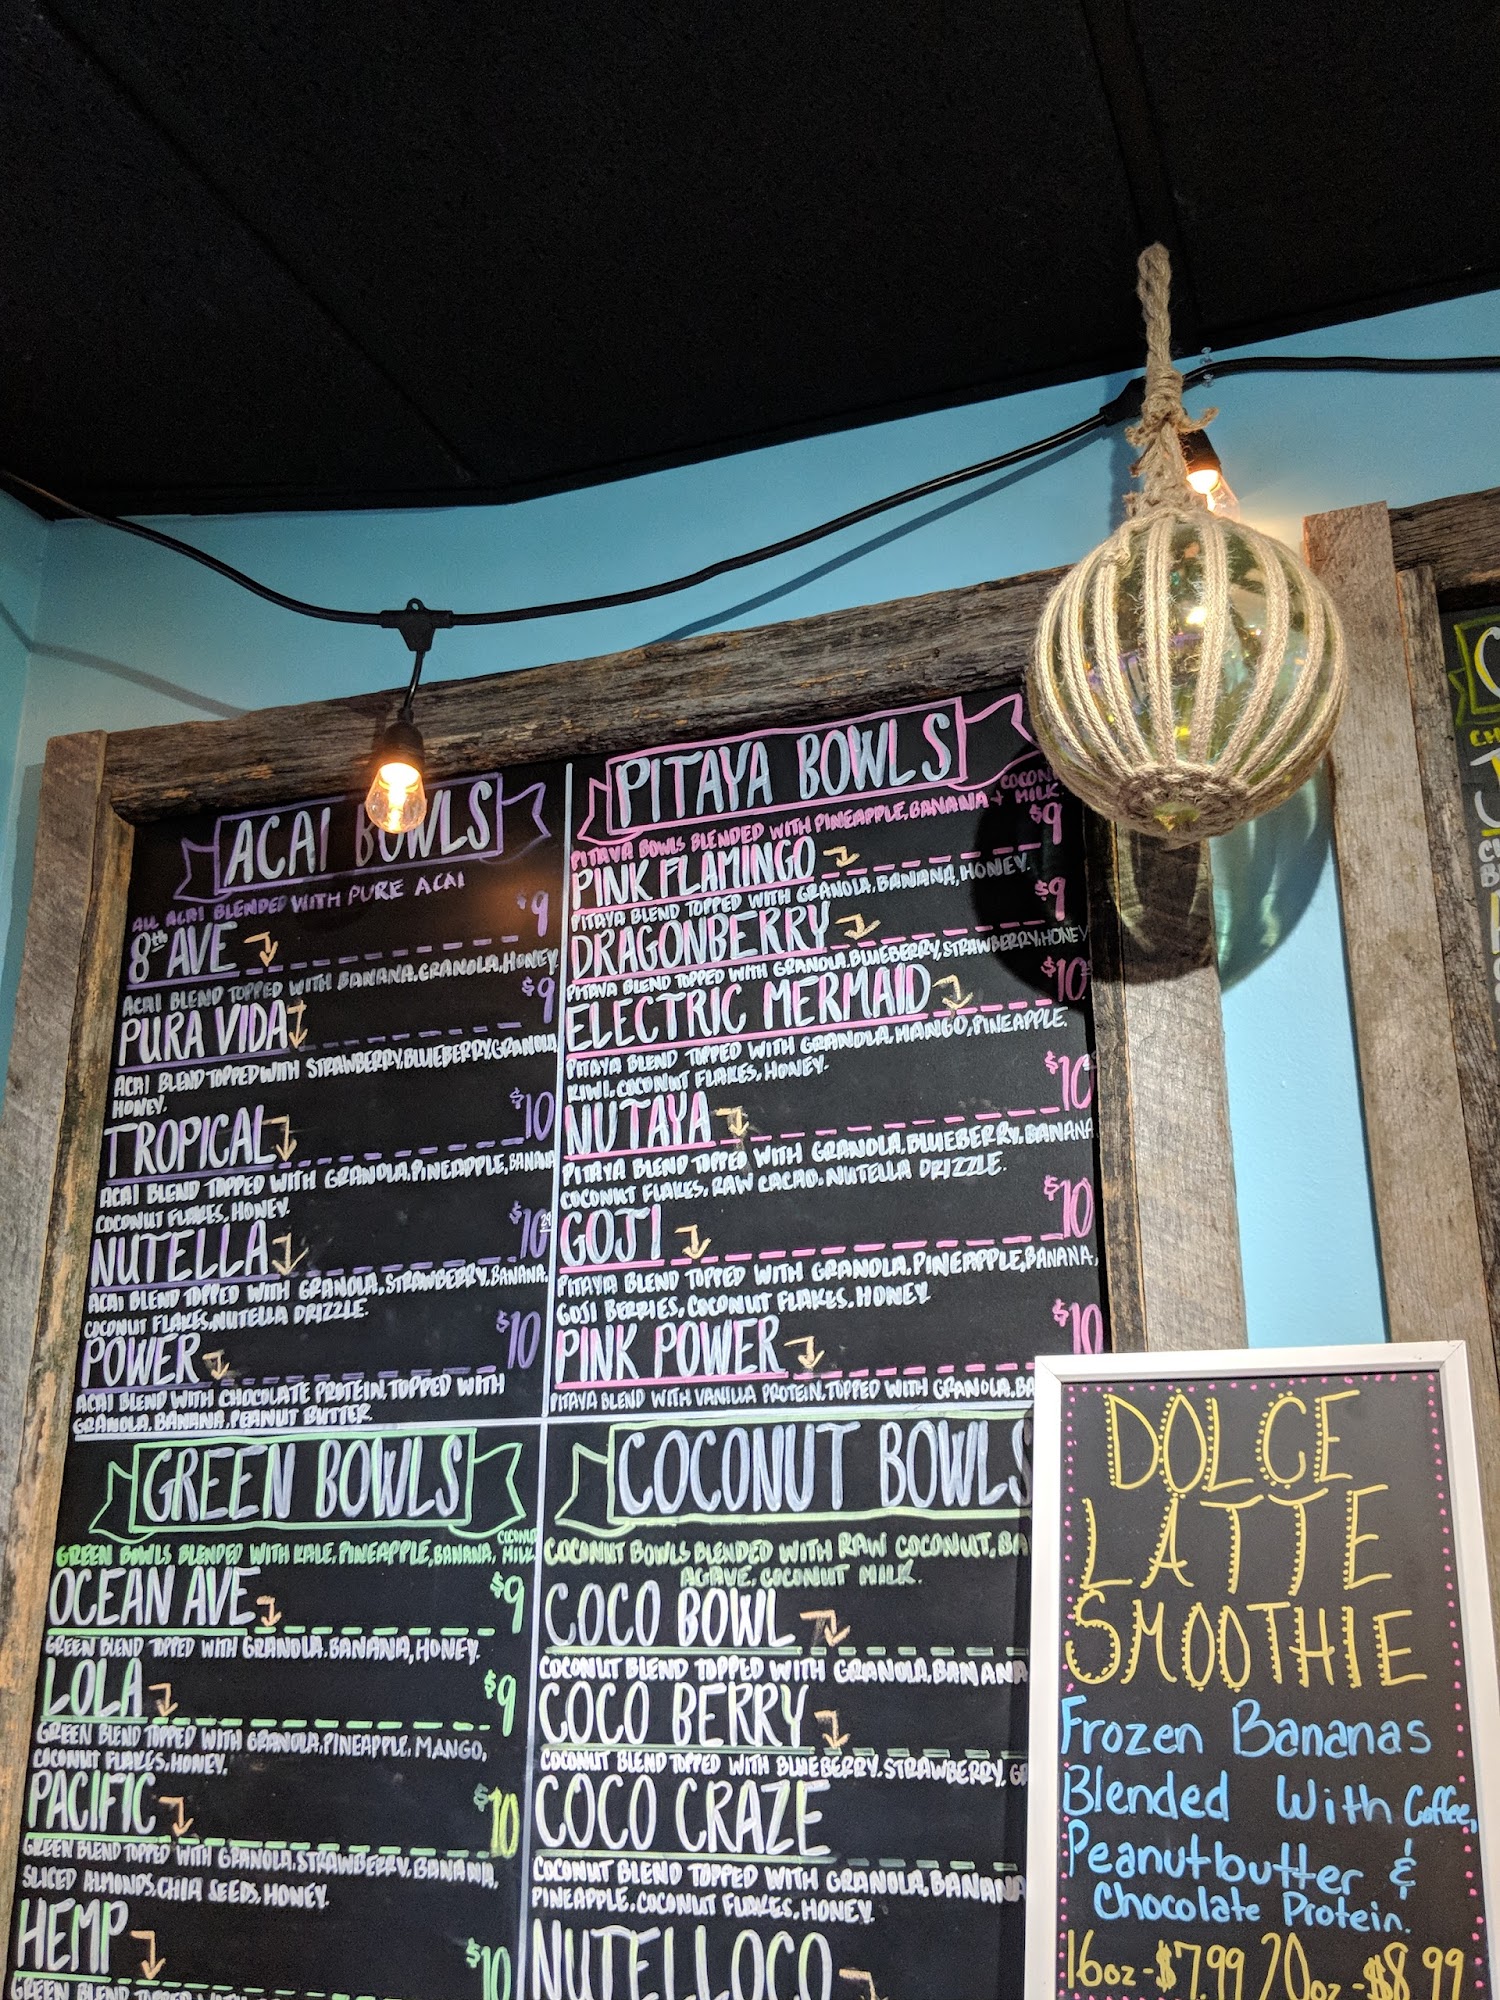 ACAI BOWLS
ALL ACAI BLENDED WITH PURE ACAI
8th AVE $9
ACAI BLEND TOPPED WITH BANANA, GRANOLA, HONEY
PURA VIDA $9
ACAI BLEND TOPPED WITH STRAWBERRY, BLUEBERRY, GRANOLA,
HONEY.
TROPICAL $10
ACAI BLEND TOPPED WITH GRANOLA, PINEAPPLE, BANANA
COCONUT FLAKES, HONEY.
NUTELLA $10
ACAI BLEND TOPPED WITH GRANOLA, STRAWBERRY, BANANA,
COCONUT FLAKES, NUTELLA DRIZZLE.
POWER $10
ACAI BLEND WITH CHOCOLATE PROTEIN. TOPPED WITH
GRANOLA, BANANA, PEANUT BUTTER.
PITAYA BOWLS
PITAYA BOWLS BLENDED WITH PINEAPPLE, BANANA + COCONUT MILK.
PINK FLAMINGO $9
PITAYA BLEND TOPPED WITH GRANOLA, BANANA, HONEY.
DRAGONBERRY $9
PITAYA BLEND TOPPED WITH GRANOLA, BLUEBERRY, STRAWBERRY, HONEY
ELECTRIC MERMAID $10
PITAYA BLEND TOPPED WITH GRANOLA, MANGO, PINEAPPLE.
KIWI, COCONUT FLAKES, HONEY.
NUTAYA $10
PITAYA BLEND TOPPED WITH GRANOLA, BLUEBERRY, BANANA
COCONUT FLAKES, RAW CACAO, NUTELLA DRIZZLE.
GOJI $10
PITAYA BLEND TOPPED WITH GRANOLA, PINEAPPLE, BANANA,
GOJI BERRIES, COCONUT FLAKES, HONEY
PINK POWER $10
PITAYA BLEND WITH VANILLA PROTEIN. TOPPED WITH GRANOLA, BA
GREEN BOWLS
GREEN BOWLS BLENDED WITH KALE, PINEAPPLE, BANANA, COCONUT MILK
OCEAN AVE $9
GREEN BLEND TOPPED WITH GRANOLA, BANANA, HONEY.
LOLA $9
GREEN BLEND TOPPED WITH GRANOLA, PINEAPPLE, MANGO,
COCONUT FLAKES, HONEY.
PACIFIC $10
GREEN BLEND TOPPED WITH GRANOLA, STRAWBERRY, BANANA,
SLICED ALMONDS, CHIA SEEDS, HONEY.
HEMP $10
GREEN BLEND TOPPED WITH
COCONUT BOWLS
COCONUT BOWLS BLENDED WITH RAW COCONUT, BA
AGAVE, COCONUT MILK.
COCO BOWL
COCONUT BLEND TOPPED WITH GRANOLA, BANANA
COCO BERRY
COCONUT BLEND TOPPED WITH BLUEBERRY, STRAWBERRY, G
COCO CRAZE
COCONUT BLEND TOPPED WITH GRANOLA, BANANA
PINEAPPLE, COCONUT FLAKES, HONEY.
NUTELLOCO
DOLCE
LATTE
SMOOTHIE
Frozen Bananas
Blended With Coffee,
Peanutbutter &
Chocolate Protein.
16oz-$7.99 20oz-$8.99